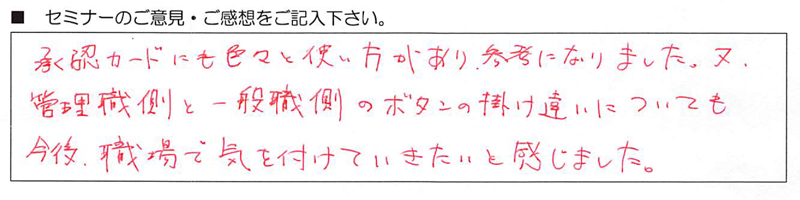 ■ セミナーのご意見・ご感想をご記入下さい。
承認カードにも色々と使い方があり、参考になりました。又、
管理職側と一般職側のボタンの掛け違いについても
今後、職場で気を付けていきたいと感じました。